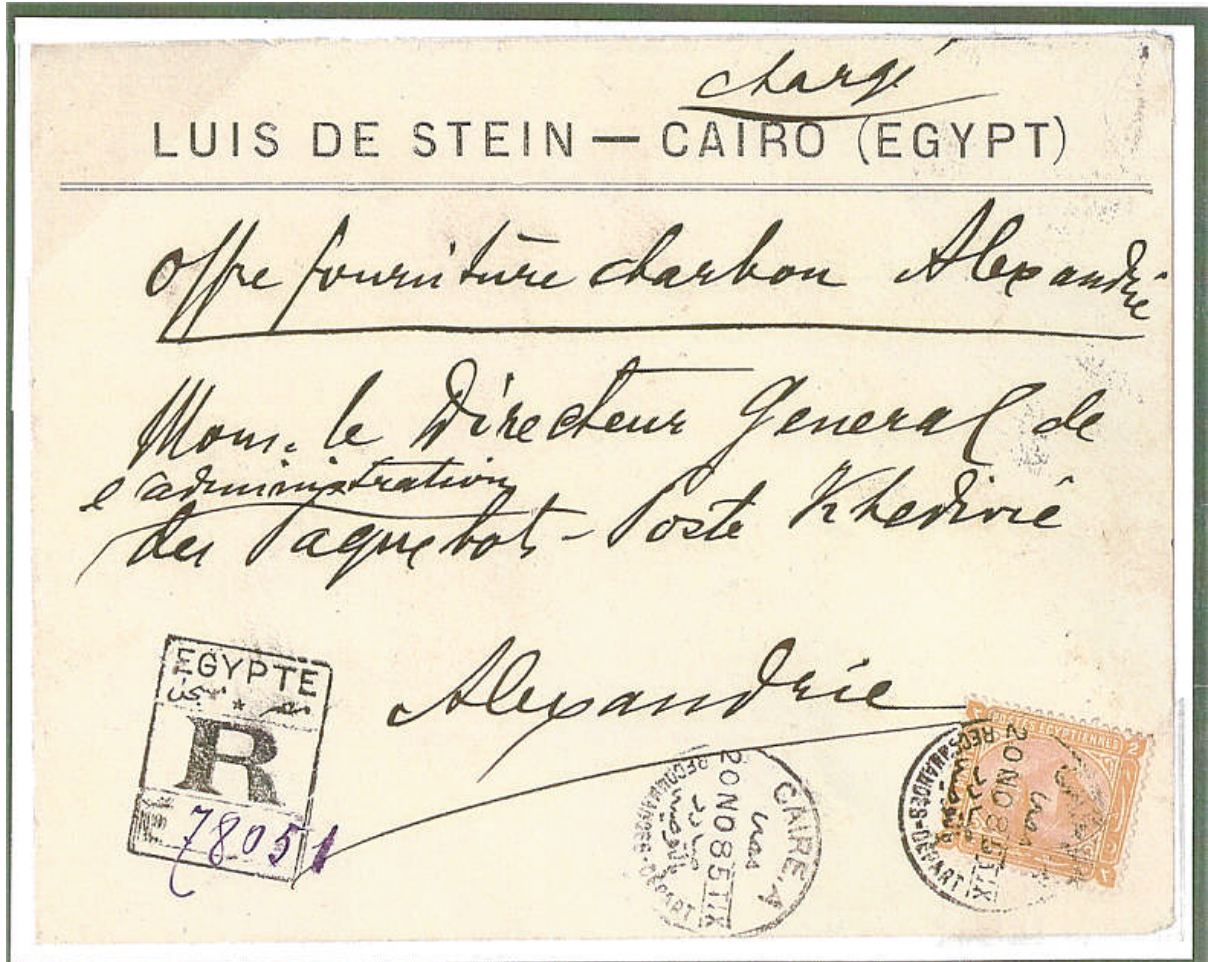 chargé
LUIS DE STEIN — CAIRO (EGYPT)
Offre fourniture charbon Alexandrie
Mons. le Directeur General de
l'administration
des Paquebots-Poste Khedivié
Alexandrie
EGYPTE
مصر
R
78051
CAIRE-A
مصر
20 NO 85 T IX
صادر
RECOMMANDÉS-DÉPART
POSTES EGYPTIENNES
2
20 NO 85 T IX
RECOMMANDÉS-DÉPART